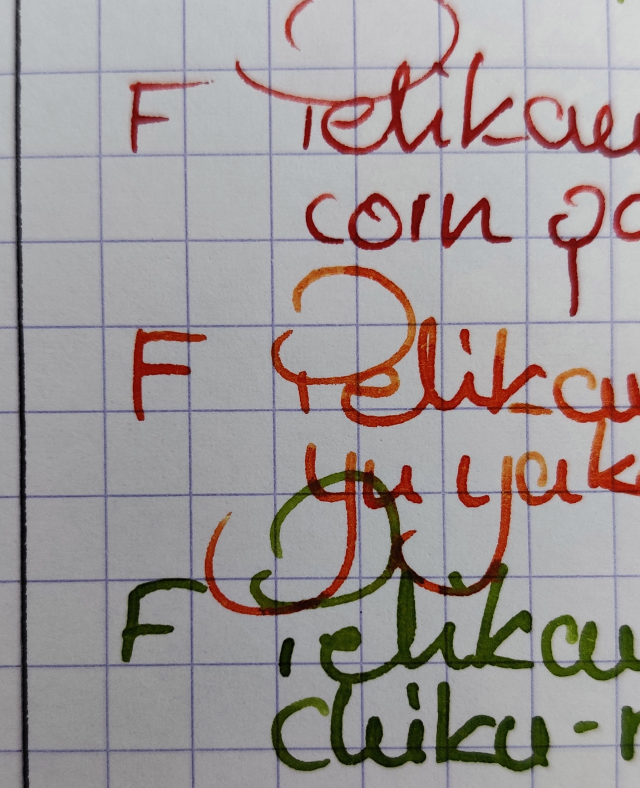 F Pelikan
corn po
F Pelikan
yu yak
F Pelikan
chiku-r